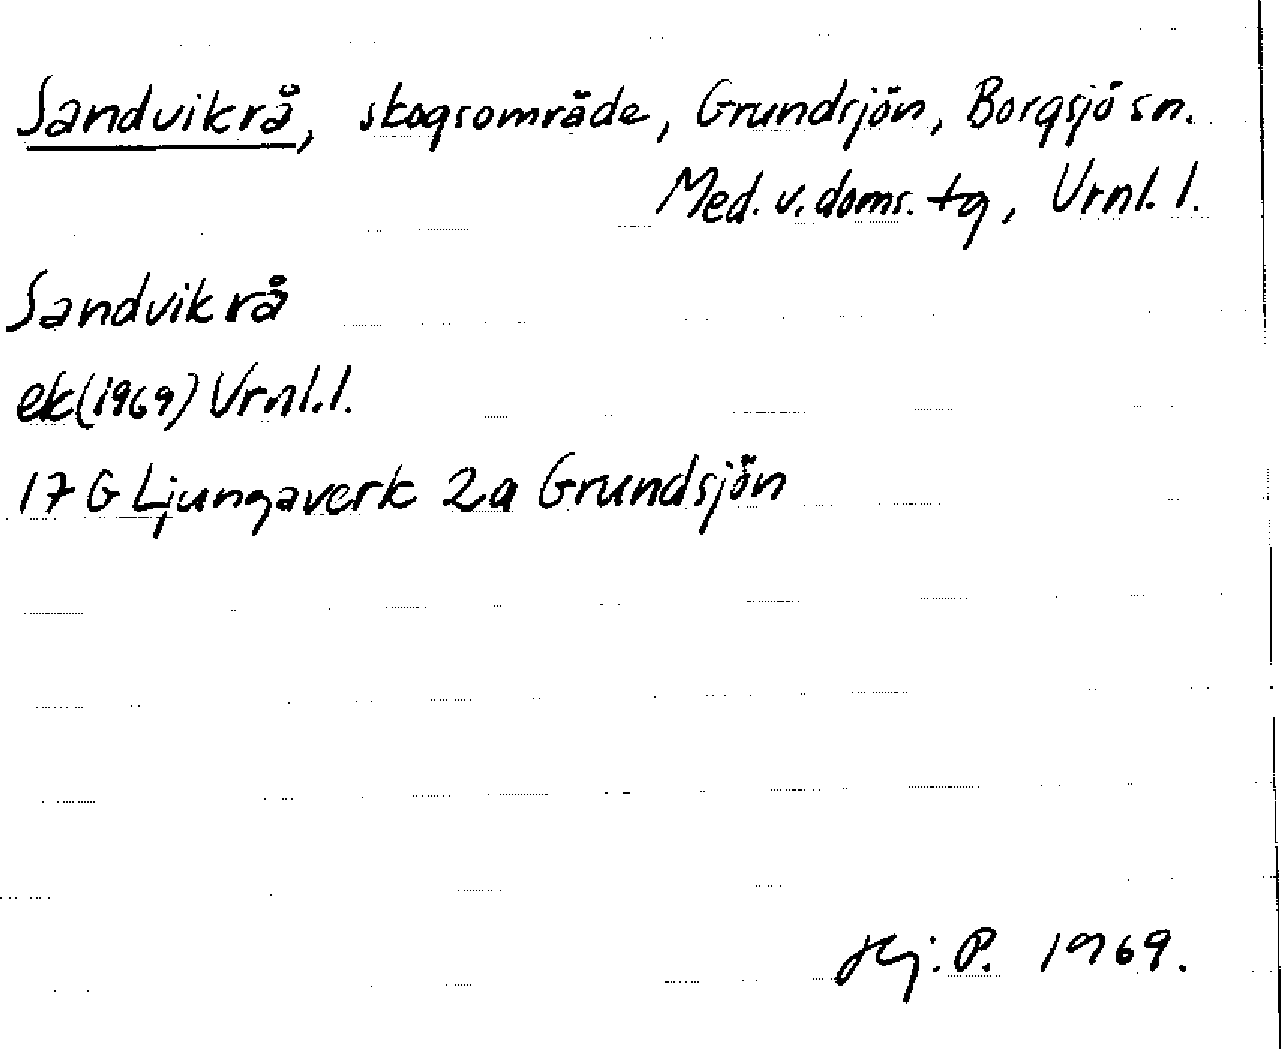 Sandvikrå, skogsområde, Grundsjön, Borgsjö sn.
Med. v. doms. tg, Vrnl. l.
Sandvikrå
ek(1969) Vrnl. l.
17 G Ljungaverk 2a Grundsjön
Hj. P. 1969.